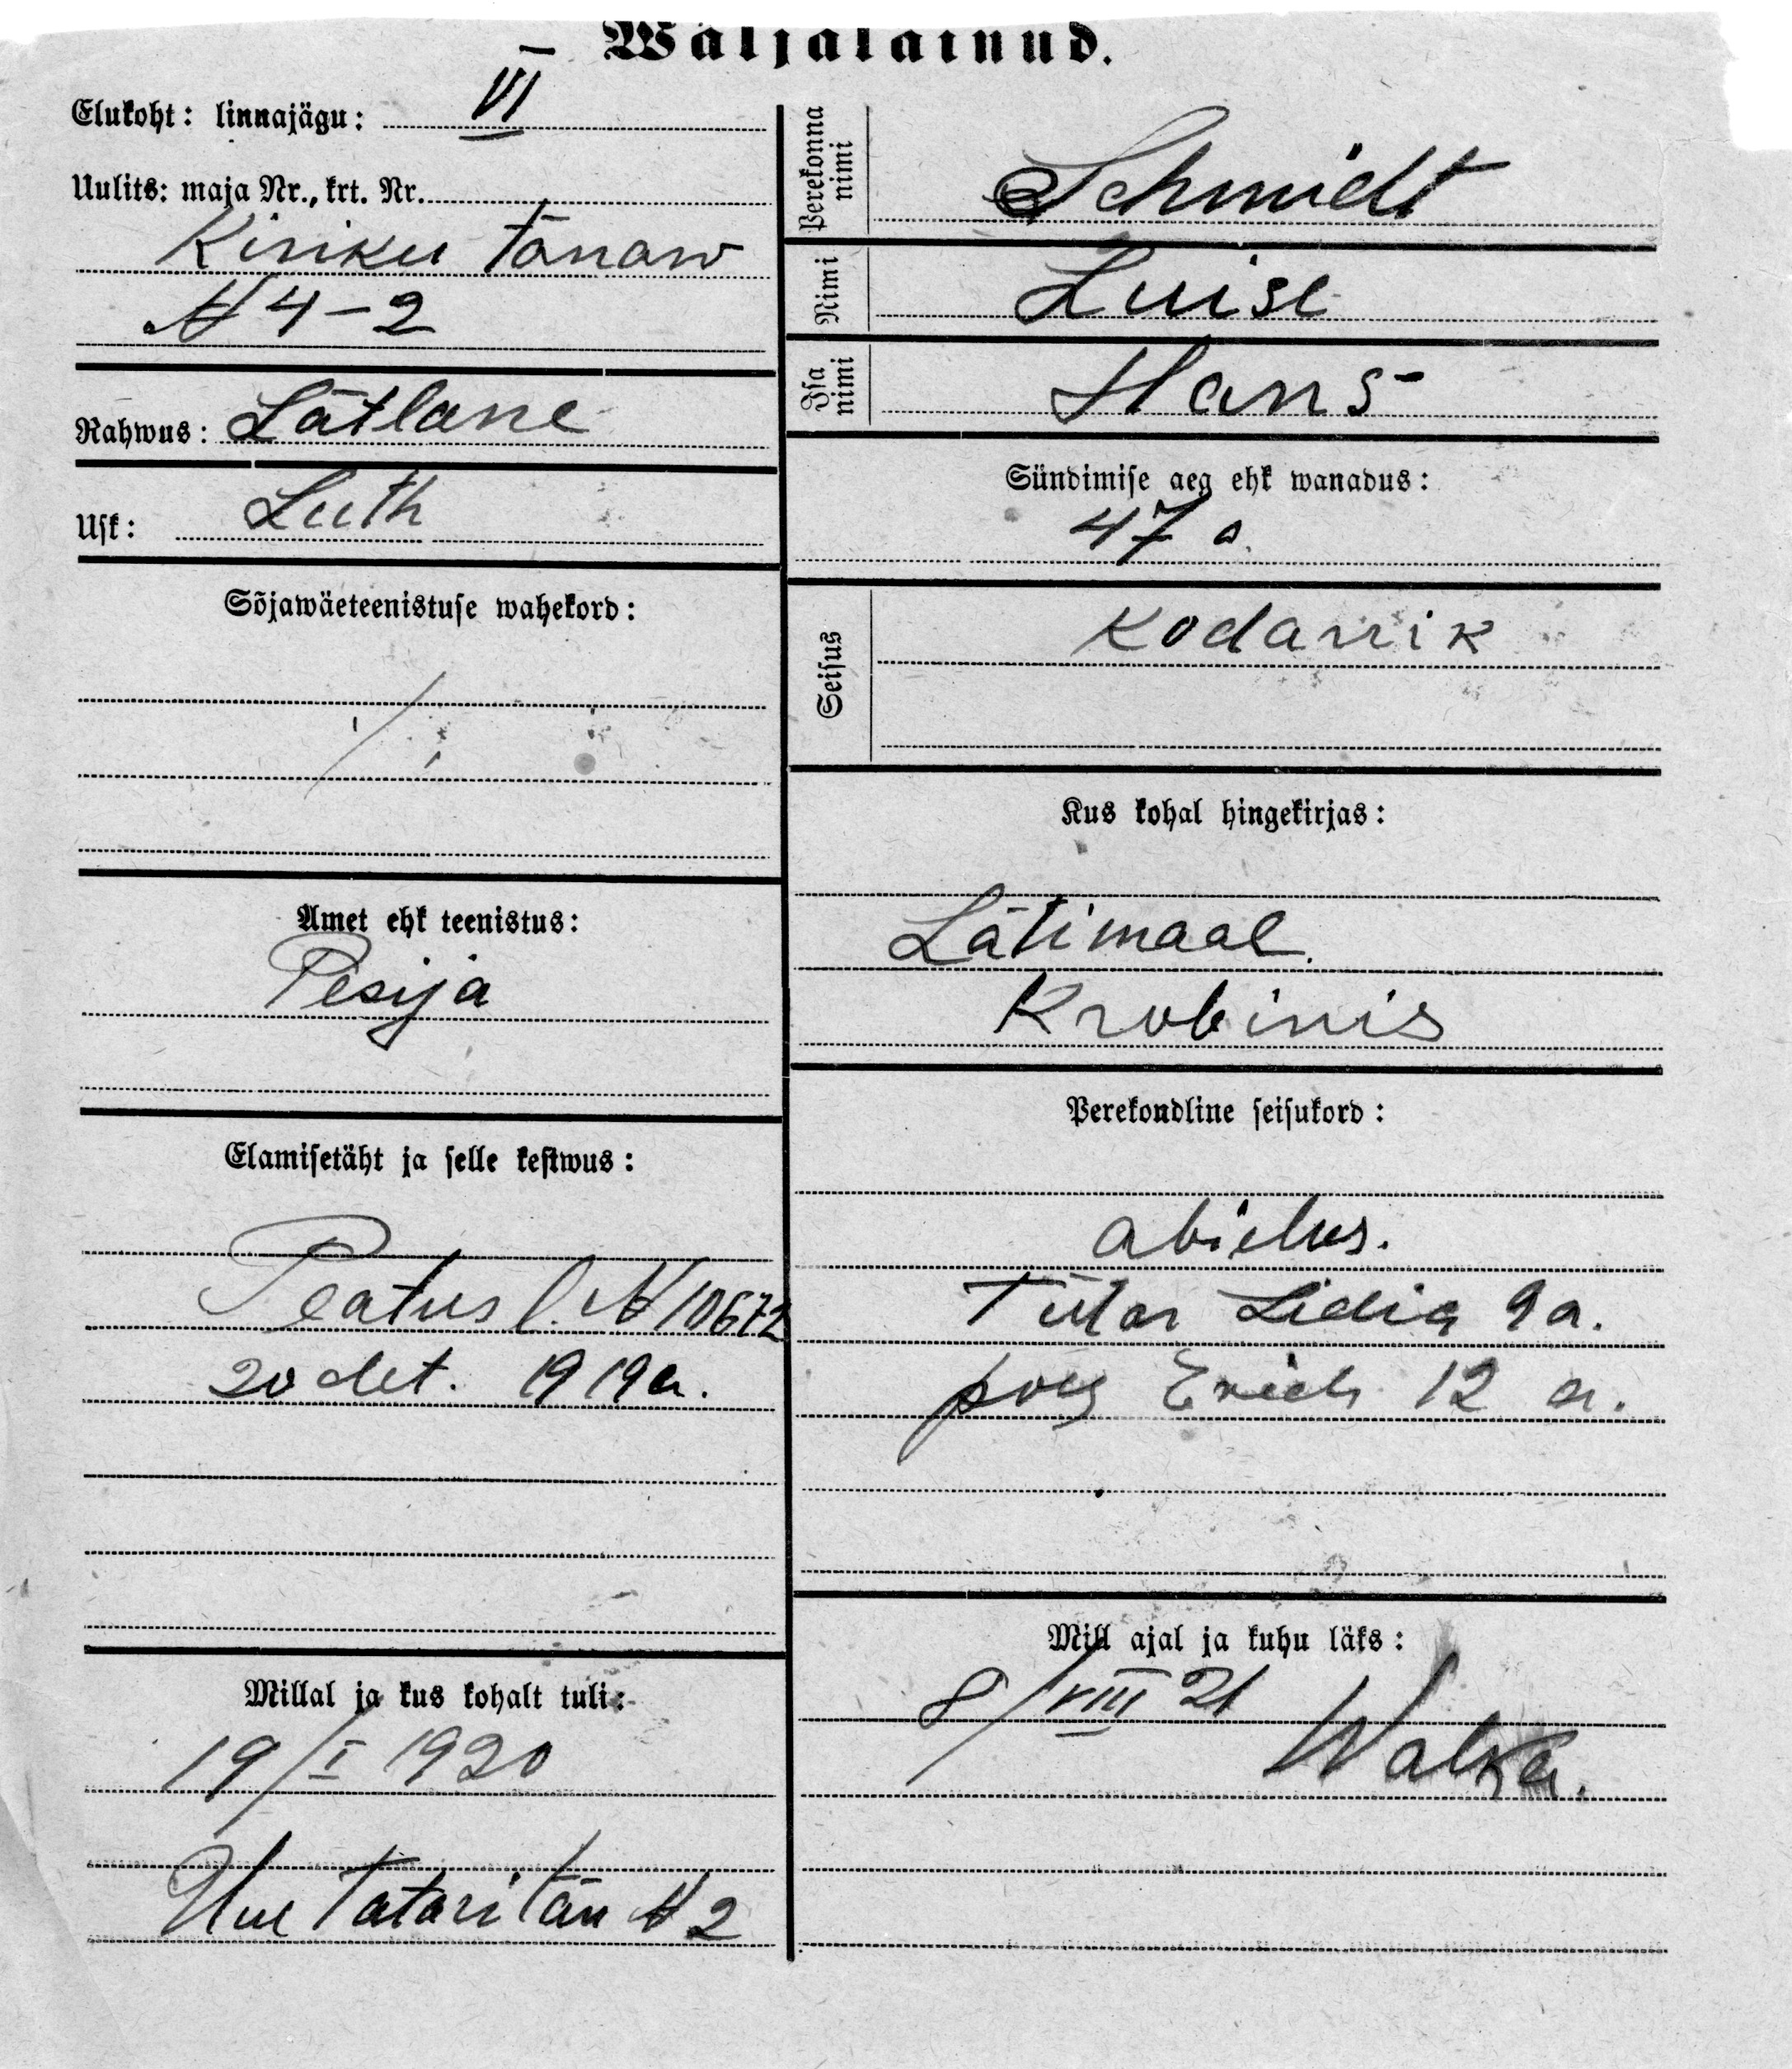 Wäljaläinud.
Elukoht: linnajägu: VI
Uulits: maja Nr., krt. Nr.
Kiriku tänaw
№ 4-2
Rahwus: Lätlane
Usk: Luth
Sõjawäeteenistuse wahekord:
Amet ehk teenistus:
Pesija
Elamisetäht ja selle kestwus:
Peatus l. № 10672
20 det. 1919 a.
Millal ja kus kohalt tuli:
19/I 1920
Uue Tatari tän № 2
Perekonna nimi Schmidt
Nimi Luise
Isa nimi Hans
Sündimise aeg ehk wanadus:
47 a.
Seisus Kodanik
Kus kohal hingekirjas:
Lätimaal.
Krobinis
Perekondline seisukord:
abielus.
Tütar Lidia 9 a.
poeg Erich 12 a.
Mill ajal ja kuhu läks:
8/VIII 21 Walka.